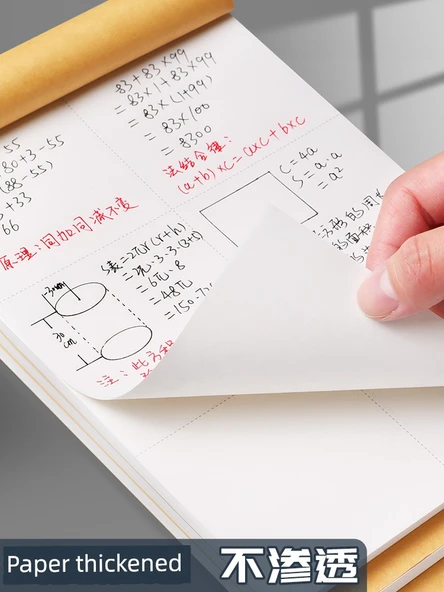 83+83×99
=83×1+83×99
=83×(1+99)
=83×100
=8300
法结合律:
(a+b)×c=a×c+b×c
55
80+3-55
(88-55)
+33
66
原理:同加同减不变
C=4a
S=a·a
=a²
S表=2πr(r+h)
=6π·8
=48π
=150.7
30
cm
Paper thickened
不渗透